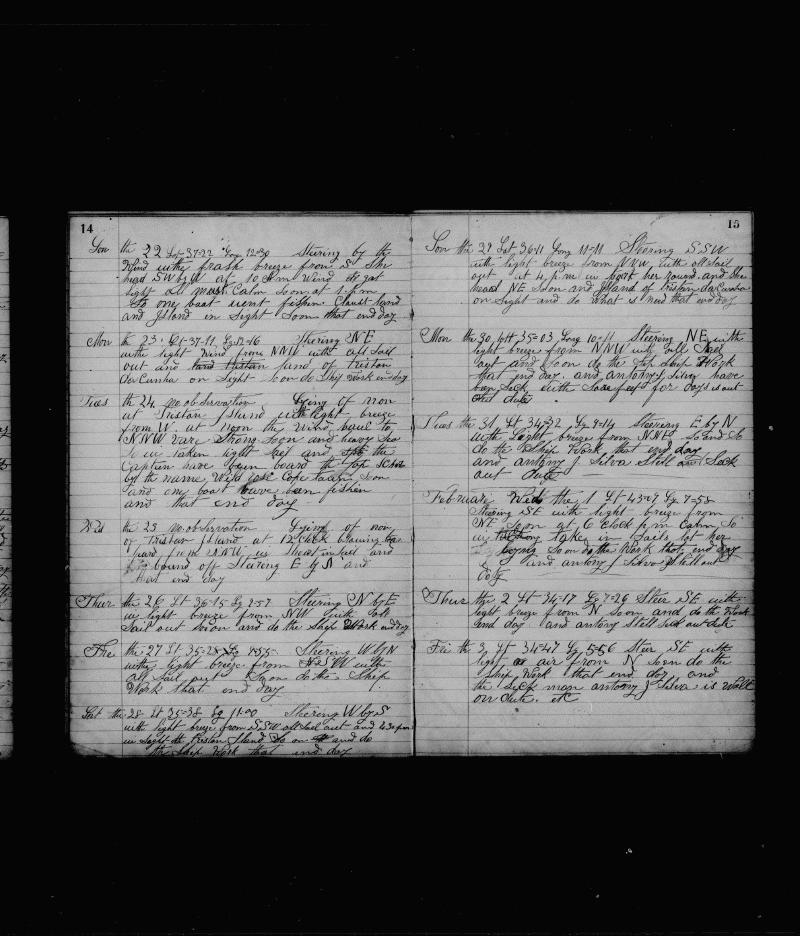 14
Son the 22 Lat 37-22 Long 12-30 Steering by the
Wind withe frash breze from S She
head SW by W at 10 a.m Wind
light all most Calm Soon at 1 p.m
So one boat went fishen Clanst land
and Island in Sight Soon that end day
Mon th 23. Lt 37-11 Lg 12-16 Steering NE
with light Wind from NNW with all Sail
out and land tristan land of tristan
da Cunha on Sight soon do Ship Work end day
Tues the 24. no observation Lying of non
at Tristan Island with light breze
from W. at noon the Wind haul to
NNW vare Strong soon and heavy Sea
So in taken light sail and
Captain have been board the top
by the name Wild rose Cope taun Son
and one boat have been fishen
and that end day
Wed the 25 no observation Lying of non
of Tristan Island at 12 Clock
from NNW in sail and
bound off Stearing E by N and
that end day
Thur the 26 Lt 36-15 Lg 9-57 Steering N by E
with light breze from NW with Sail
Sail out soon and do the Ship Work end day
Fri the 27 Lt 35-28 Lg 9-55 Steering W by N
withe light breze from SSW with
all Sail out Soon do the Ship
Work that end day
Sat the 28 Lt 35-38 Lg 11-00 Steering W by S
with light breze from SSW all Sail out and 4.30 pm
in Sight the tristan Island So on and do
the Ship Work that end day
15
Son the 29 Lat 36-11 Long 11-11 Steering SSW
with light breze from NNW with all Sail
out at 4 p.m in her round and She
head NE Soon and Island of tristan da Cunha
on Sight and do What is need that end day
Mon the 30 Latt 35-03 Long 10-11 Steering NE with
light breze from NNW with all Sail
out and Soon do the Ship Work
that end day. and antony silva have
been Sick with Sore feet for days is out
out dute
Thues the 31 Lt 34-32 Lg 9-14 Steering E by N
with Light breze from NNE so and So
do the Ship Work that end day
and antony J Silva Still Sick
out dute
Februare Wed the 1 Lt 43-07 Lg 7-58
Steering SE with light breze from
NE Soon at 6 Clock p.m Calm So
in take in Sails let her
Lying Soon do the Work that end day
and antony J Silva Still out
Dute
Thur the 2 Lt 34-17 Lg 7-26 Stear SE with
light breze from N Soon and do the Work
end day and antony Still Sick out dute
Fri the 3. Lt 34-47 Lg 5-56 Stear SE with
light air from N Soon do the
Ship Work that end day and
the Sick man antony J Silva is Wall
on dute. etc